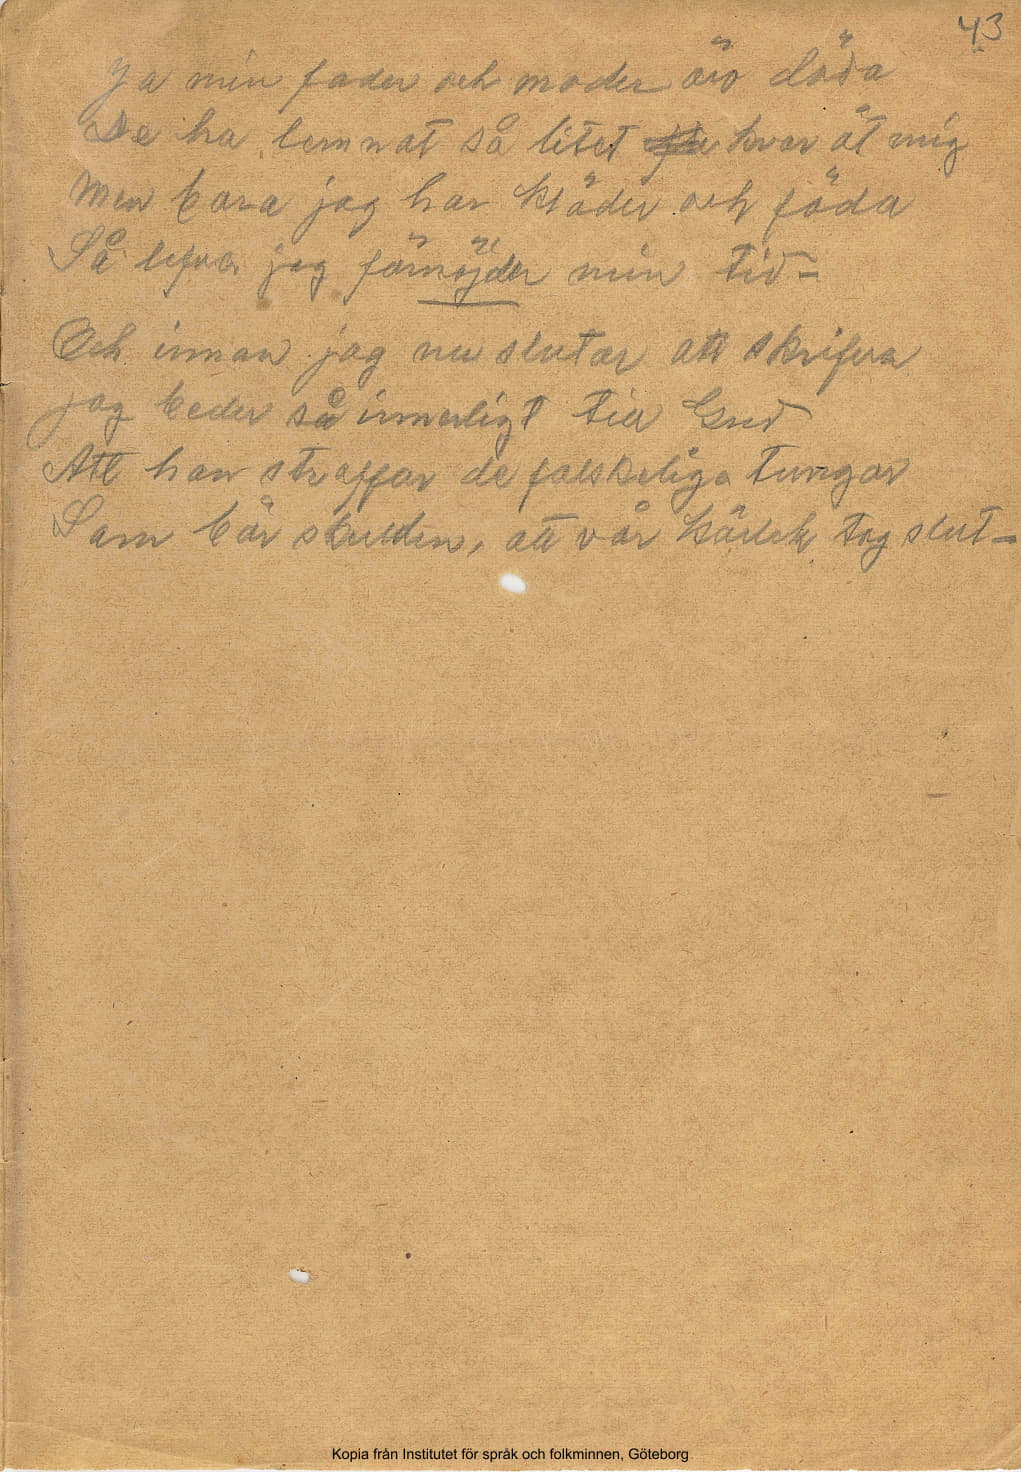 43
Ja min fader och moder äro döda
De ha lemnat så litet hvar åt mig
Men bara jag har kläder och föda
Så lefver jag förnöjder min tid –
Och innan jag nu slutar att skrifva
jag beder så innerligt till Gud
Att han straffar de falskeliga tungor
Som bär skulden, att vår kärlek tog slut –
Kopia från Institutet för språk och folkminnen, Göteborg